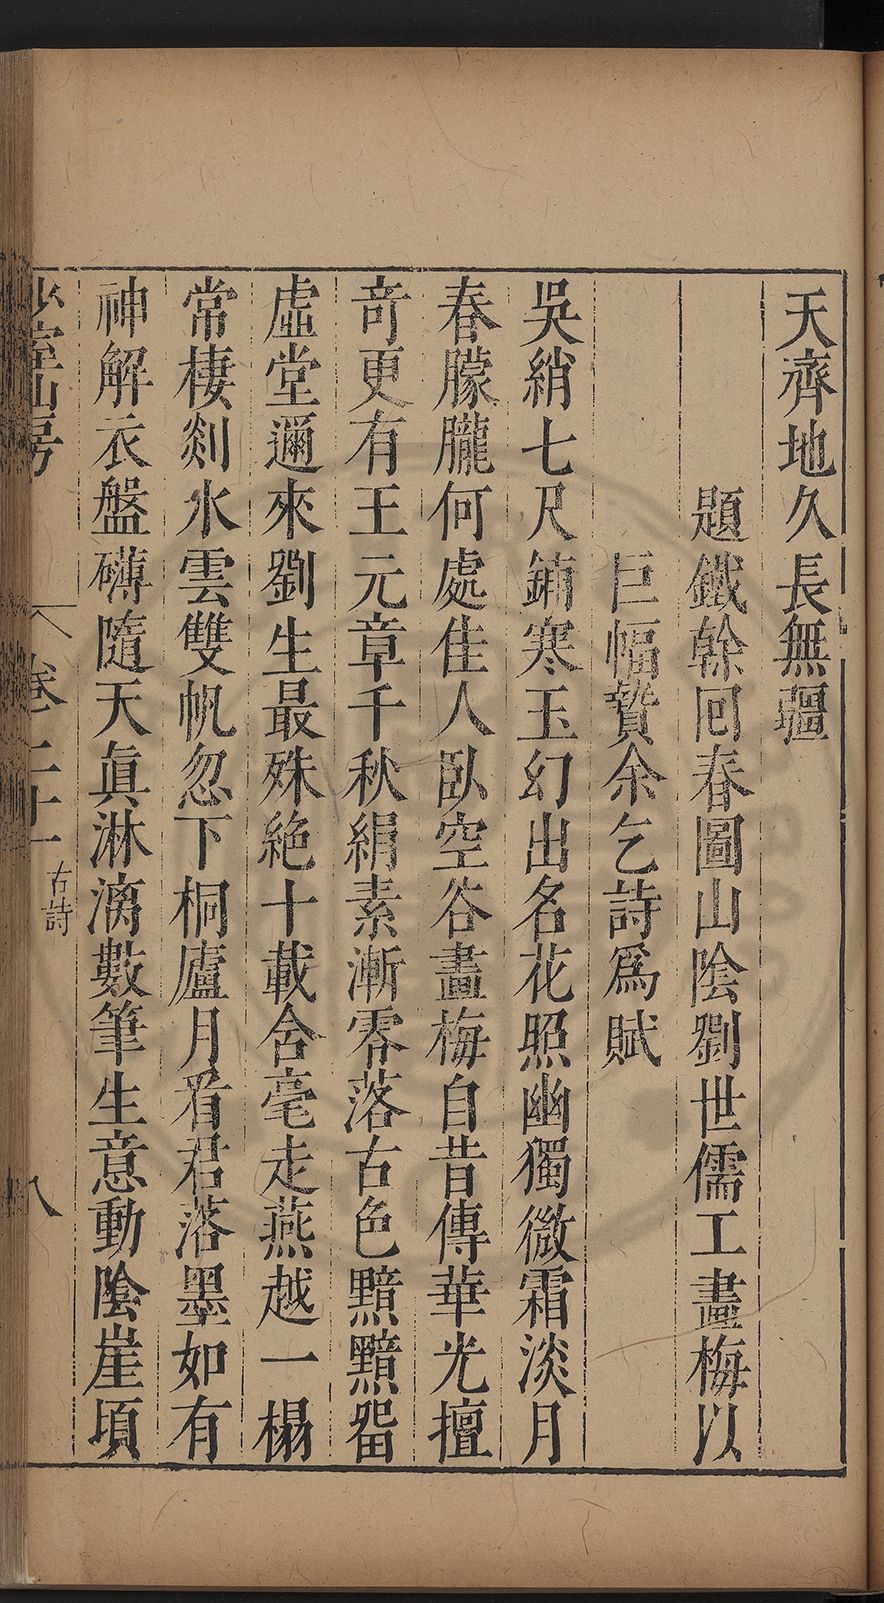 天齊地久長無疆
題鐵幹回春圖山陰劉世儒工畫梅以
巨幅贄余乞詩爲賦
吳綃七尺鋪寒玉幻出名花照幽獨微霜淡月
春朦朧何處佳人臥空谷畫梅自昔傳華光擅
奇更有王元章千秋絹素漸零落古色黯黯畱
虛堂邇來劉生最殊絶十載含毫走燕越一榻
常棲剡水雲雙帆忽下桐廬月看君落墨如有
神解衣盤礴隨天眞淋漓數筆生意動陰崖頃
少室山房
卷二十一
古詩
八